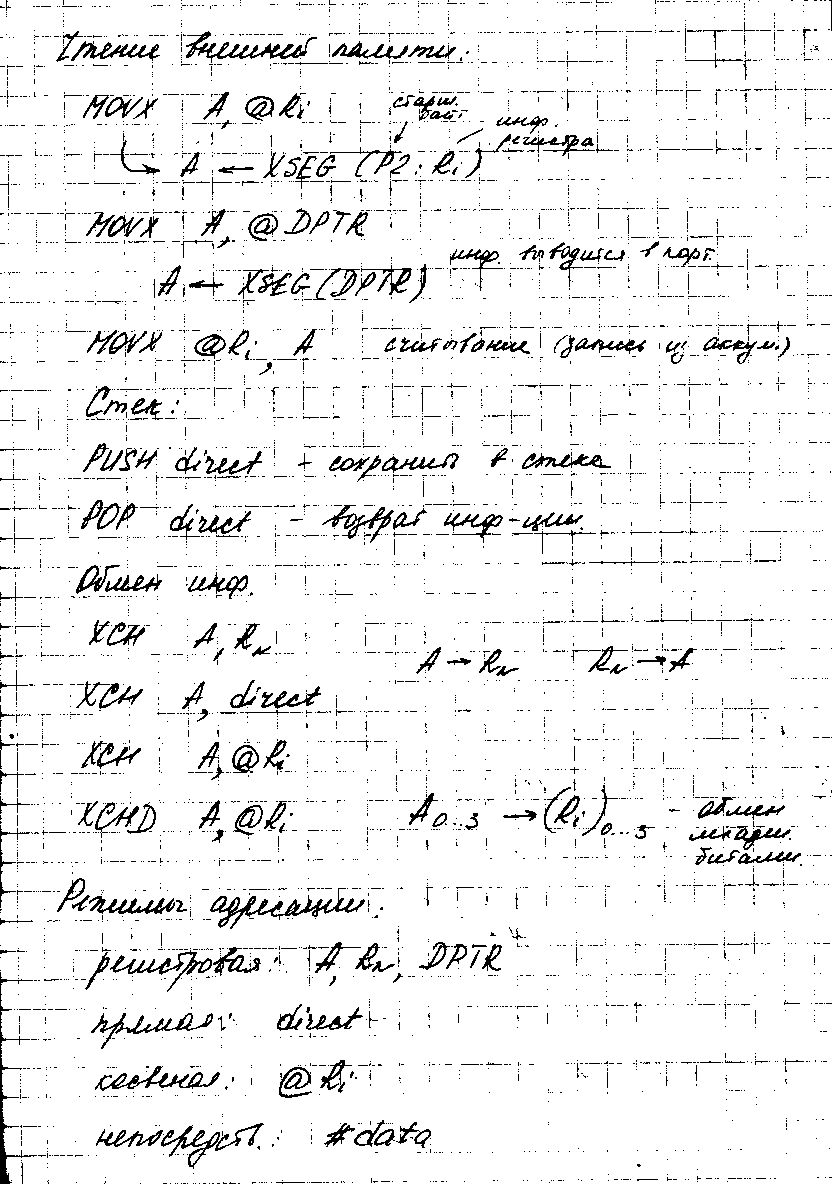 Чтение внешней памяти:
MOVX A, @Ri
старш. байт
инф. регистра
A ← XSEG (P2: Ri)
MOVX A, @DPTR
инф. выводится в порт.
A ← XSEG (DPTR)
MOVX @Ri, A считывание (запись из аккум.)
Стек:
PUSH direct - сохранить в стеке
POP direct - возврат инф-ции.
Обмен инф.
XCH A, Rn
A → Rn Rn → A
XCH A, direct
XCH A, @Ri
XCHD A, @Ri A0..3 → (Ri)0..3 - обмен
младш.
битами.
Режимы адресации:
регистровая: A, Rn, DPTR
прямая: direct
косвеная: @Ri
непосредств.: #data